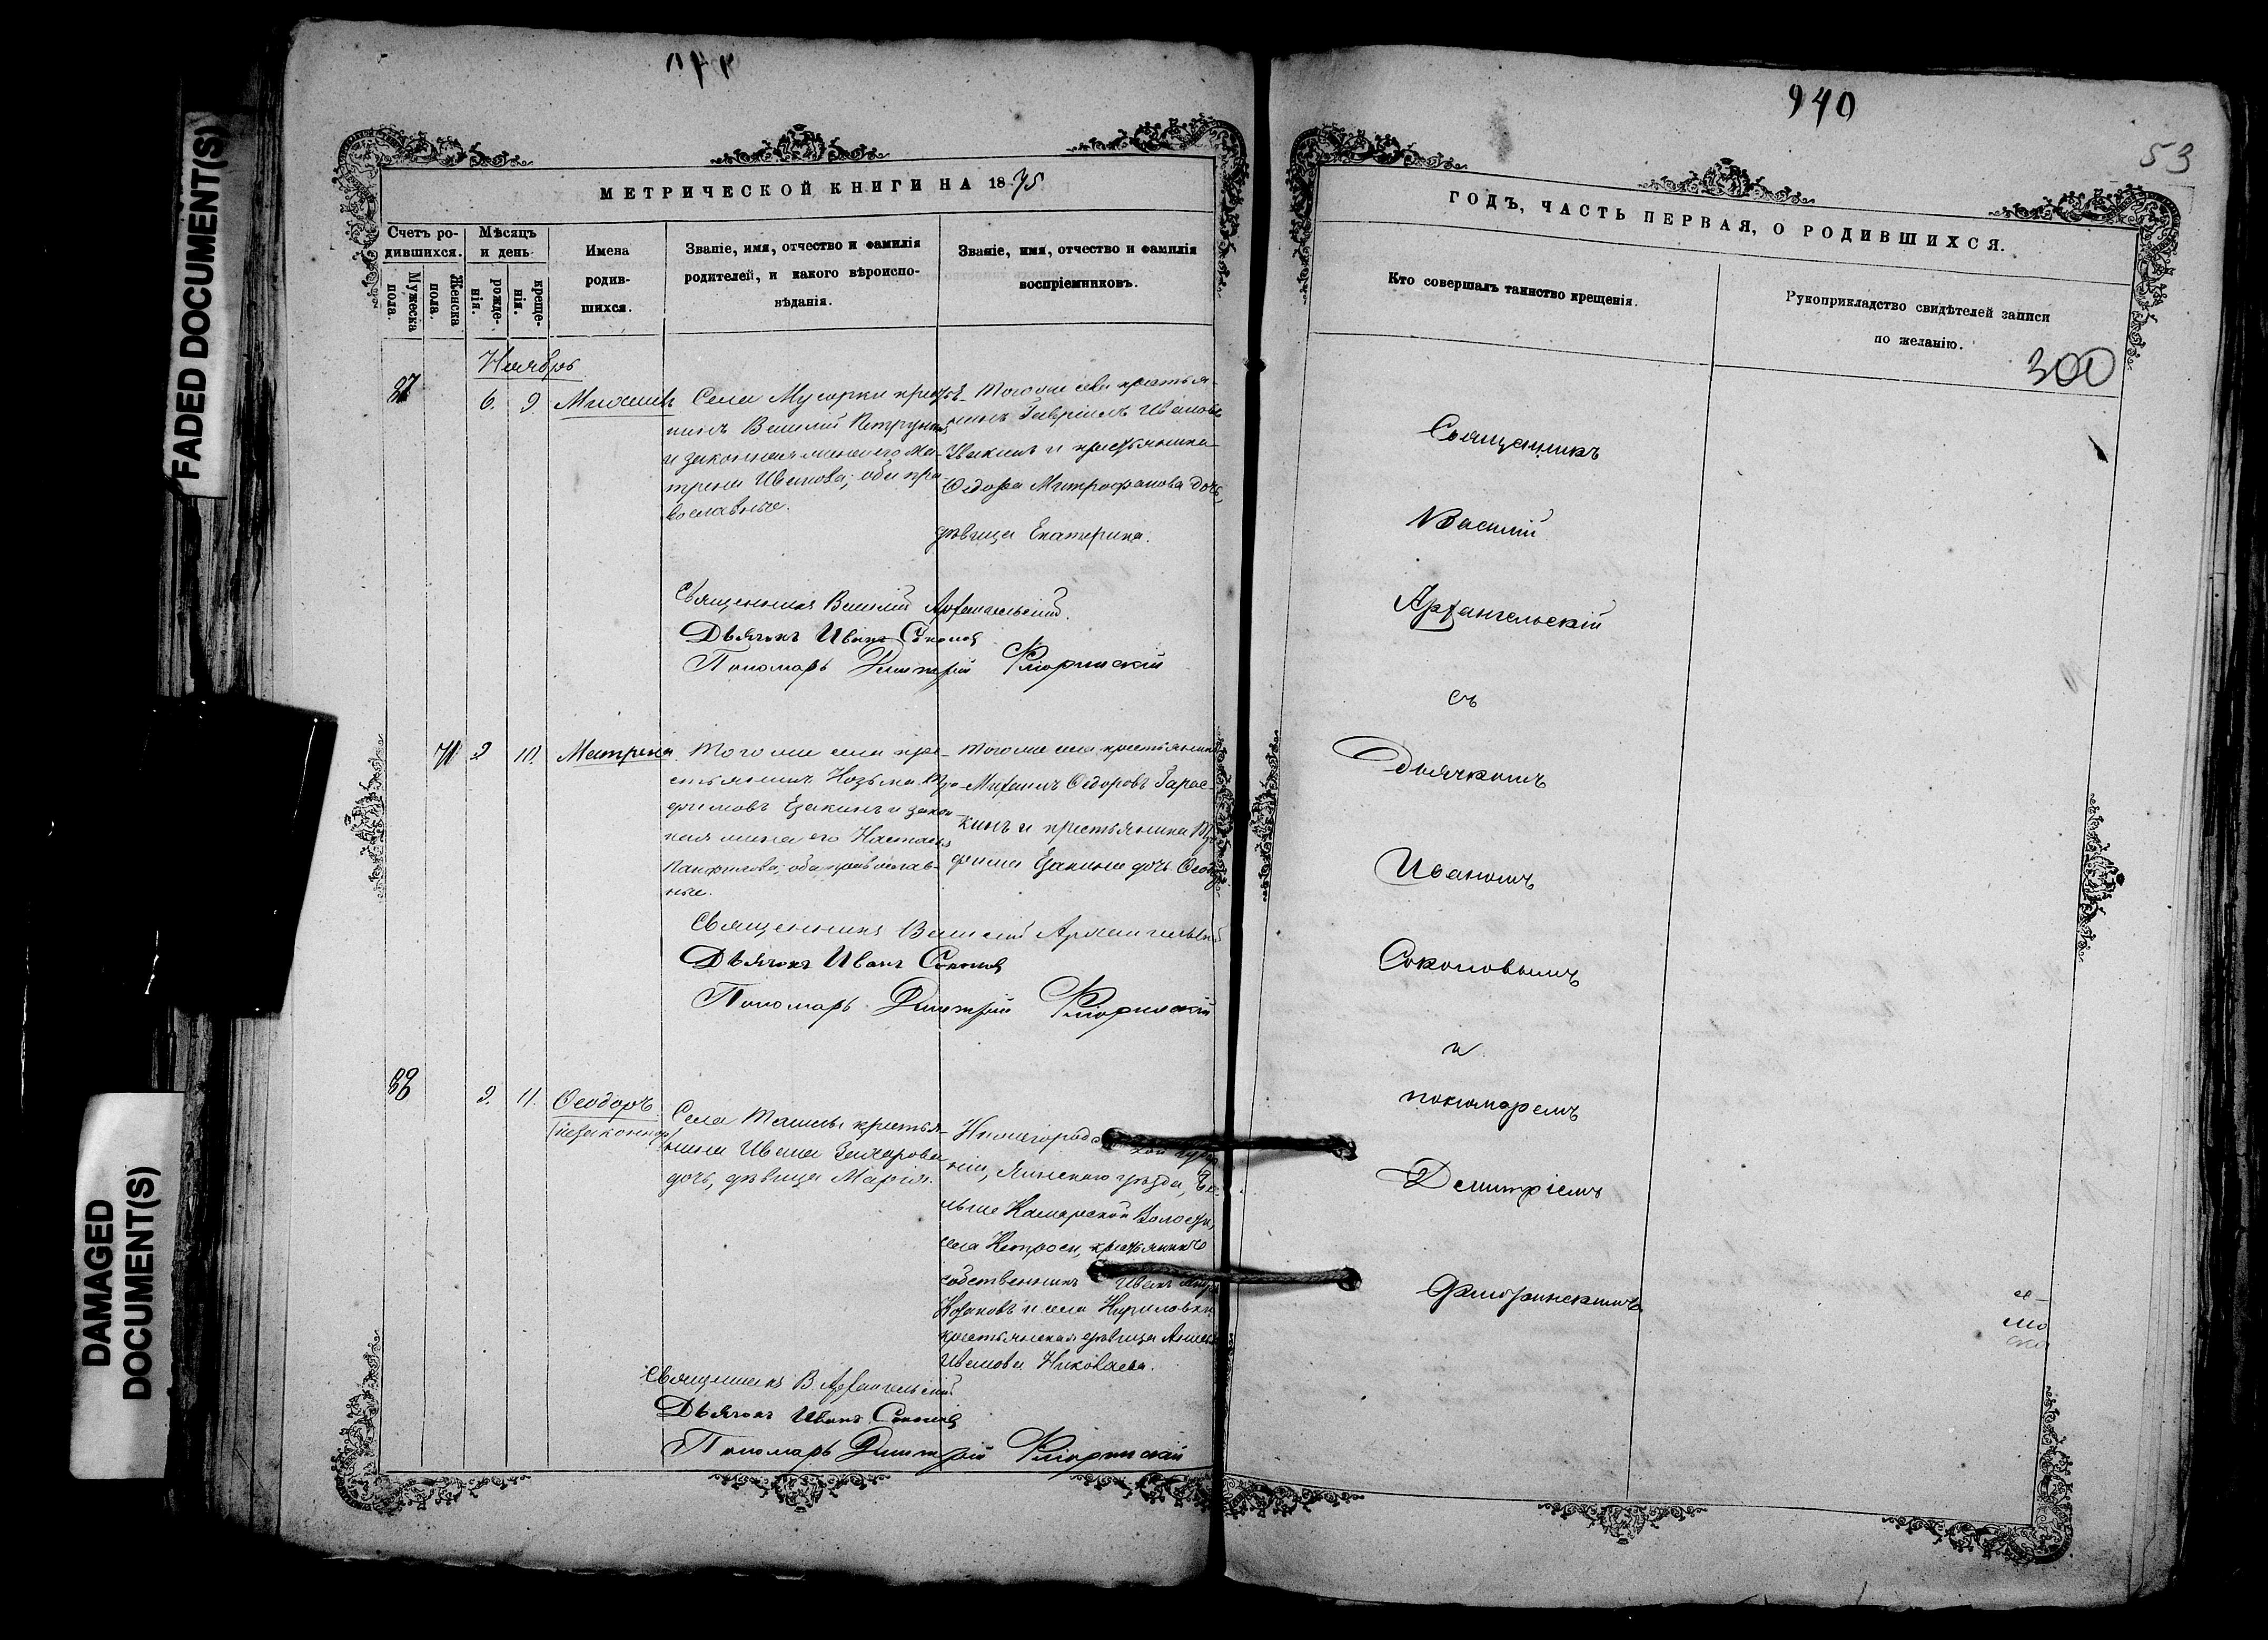 FADED DOCUMENT(S)
DAMAGED
DOCUMENT(S)
МЕТРИЧЕСКОЙ КНИГИ НА 1875
Счетъ ро-
дившихся.
Мужеска
пола.
Женска
пола.
Мѣсяцъ
и день
рожде-
нія.
креще-
нія.
Имена
родив-
шихся.
Званіе, имя, отчество и фамилія
родителей, и какого вѣроиспо-
вѣданія.
Званіе, имя, отчество и фамилія
воспріемниковъ.
Ноябрь
87
6. 9.
Михаилъ
Села Мусорки крестья-
нинъ Василій
и законная жена его Ма-
трена Иванова; оба пра-
вославные.
Тогоже села крестья-
нинъ Гавріилъ Ивановъ
и крестьянина
Ѳедора Митрофанова дочь,
дѣвица Екатерина.
Священникъ Василій Архангельскій.
Дьячокъ Иванъ Соколов
Пономарь Димитрій Флоринскій
71
9 10.
Матрена.
Тогоже села кре-
стьянинъ Козьма Тро-
фимовъ Ерзакинъ и закон-
ная жена его Настасья
Панфилова; оба православ-
ные.
Тогоже села крестьянинъ
Михаилъ Ѳедоровъ Гарас-
кинъ и крестьянина Тро-
фима дочь
Священникъ Василій Архангельскій
Дьячокъ Иванъ Соколов
Пономарь Димитрій Флоринскій
88
9. 11.
Ѳеодоръ
(незаконнор.)
Села Ташлы крестья-
нина Ивана Захарова
дочь, дѣвица Марія.
Нижегородской губер-
ніи, уѣзда, Бо-
льше Волости,
села крестьянинъ
собственникъ Иванъ
Козаковъ и села Кириловки
крестьянская дѣвица
Иванова Николаева.
Священникъ В. Архангельскій
Дьячокъ Иванъ Соколов
Пономарь Димитрій Флоринскій
940
53
ГОДЪ, ЧАСТЬ ПЕРВАЯ, О РОДИВШИХСЯ.
Кто совершалъ таинство крещенія.
Рукоприкладство свидѣтелей записи
по желанію.
300
Священникъ
Василій
Архангельскій
съ
Дьячкомъ
Иваномъ
Соколовымъ
и
пономаремъ
Димитріемъ
Флоринскимъ